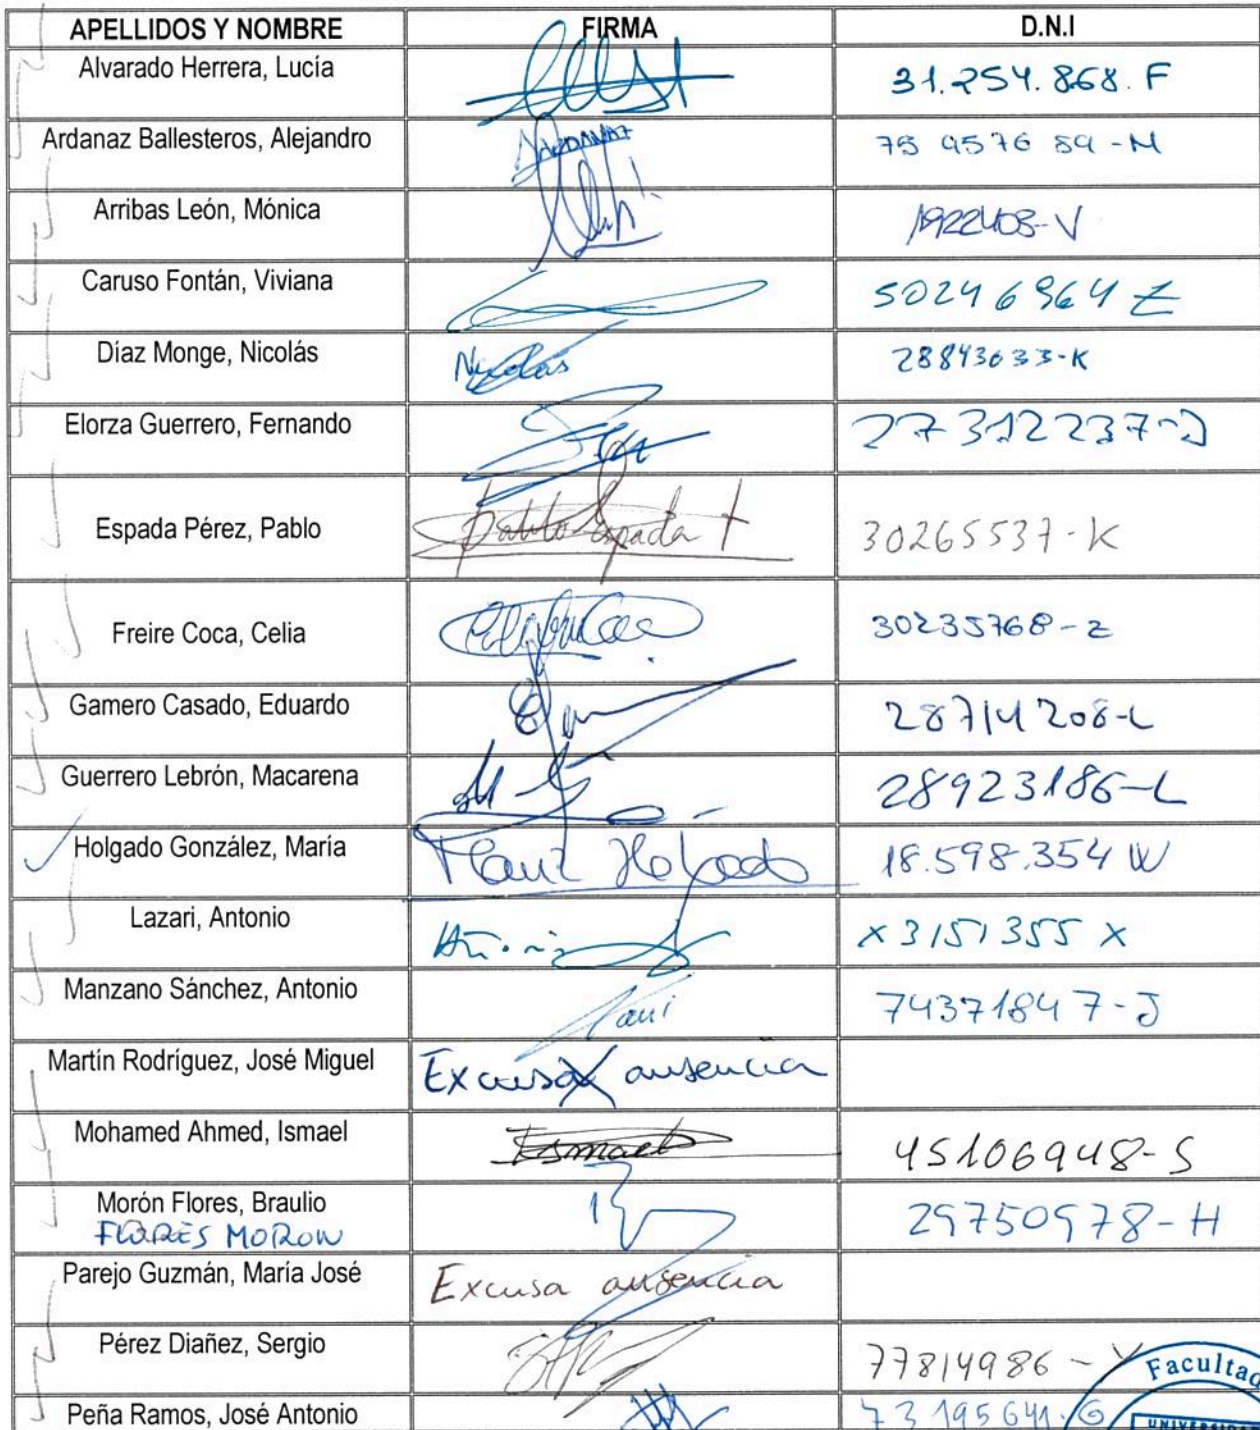 APELLIDOS Y NOMBRE FIRMA D.N.I
Alvarado Herrera, Lucía 31.254.868.F
Ardanaz Ballesteros, Alejandro
Arribas León, Mónica
Caruso Fontán, Viviana 50246964 Z
Díaz Monge, Nicolás Nicolás 28843633-K
Elorza Guerrero, Fernando 27312237-J
Espada Pérez, Pablo Pablo Espada 30265537-K
Freire Coca, Celia 30235768-Z
Gamero Casado, Eduardo 28714208-L
Guerrero Lebrón, Macarena 28923186-L
Holgado González, María 18.598.354 W
Lazari, Antonio X3151355 X
Manzano Sánchez, Antonio 74371847-J
Martín Rodríguez, José Miguel Excusa ausencia
Mohamed Ahmed, Ismael Ismael 45106948-S
Morón Flores, Braulio 29750978-H
FLORES MORON
Parejo Guzmán, María José Excusa ausencia
Pérez Diañez, Sergio 77814986 -
Peña Ramos, José Antonio 73195641.G
Facultad